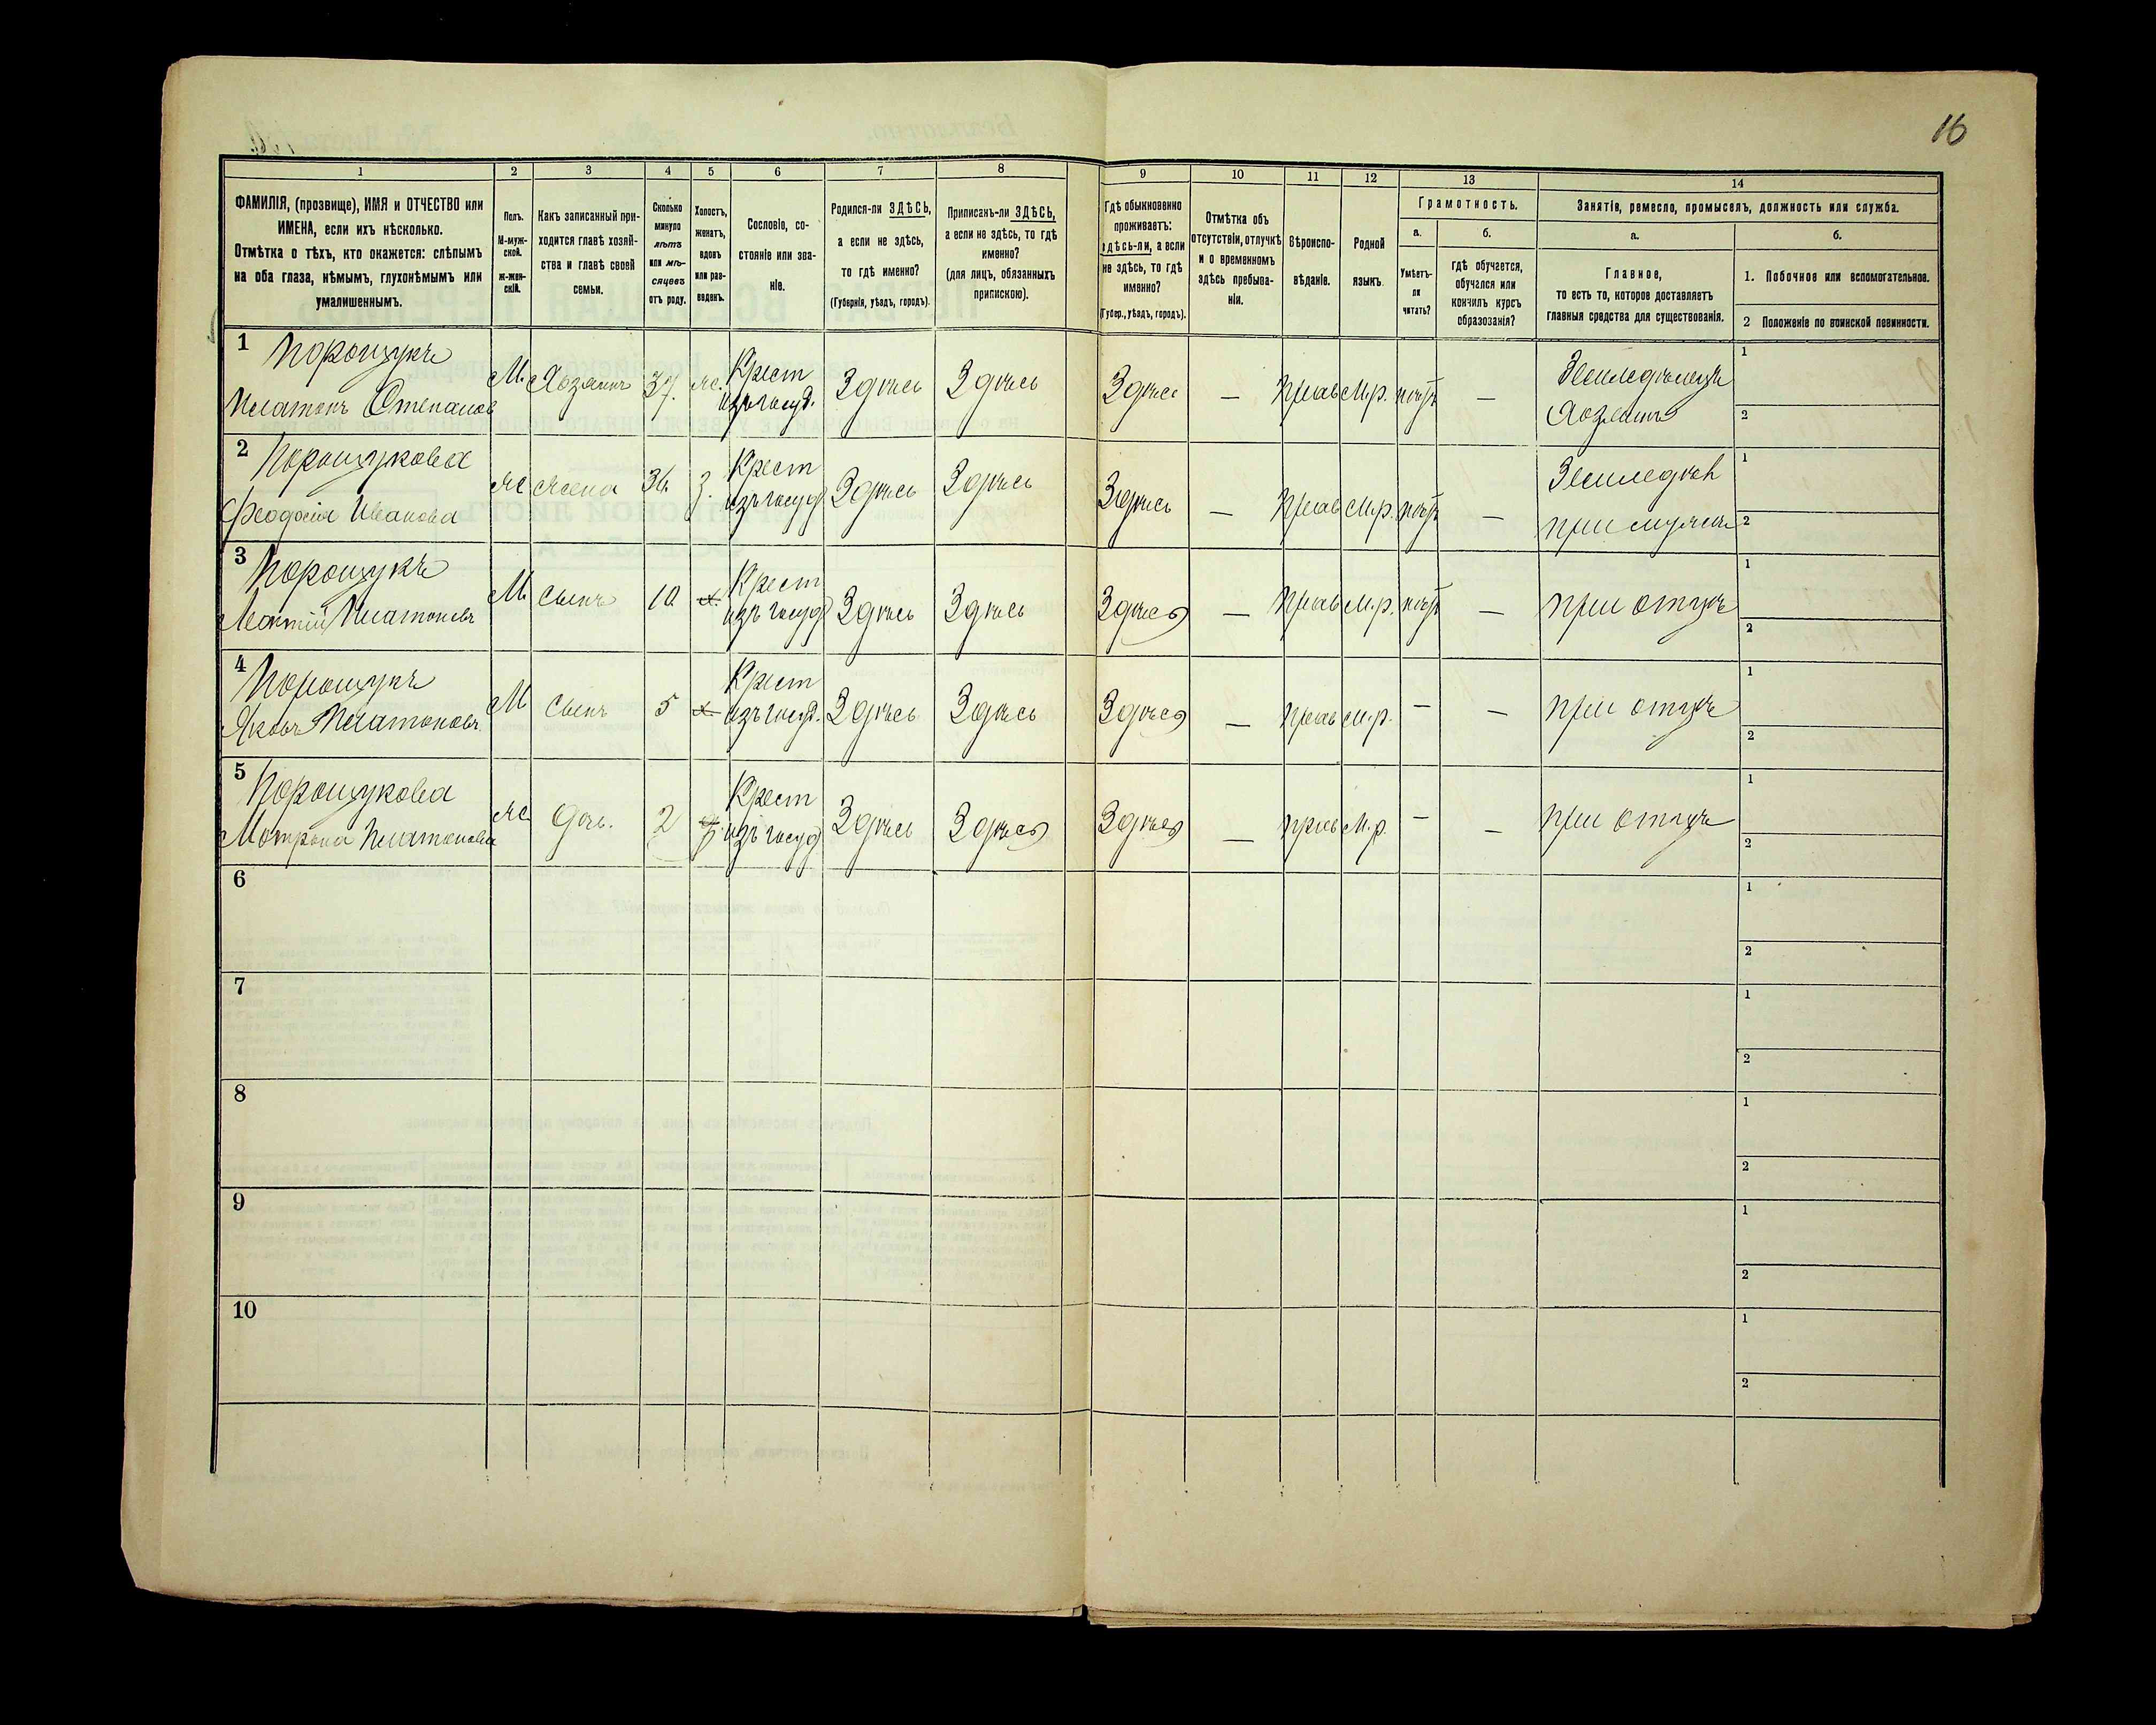 16
1 2 3 4 5 6 7 8 9 10 11 12 13 14
ФАМИЛІЯ, (прозвище), ИМЯ и ОТЧЕСТВО или
ИМЕНА, если ихъ нѣсколько.
Отмѣтка о тѣхъ, кто окажется: слѣпымъ
на оба глаза, нѣмымъ, глухонѣмымъ или
умалишеннымъ.
Полъ.
М-муж-
ской.
ж-жен-
скій.
Какъ записанный при-
ходится главѣ хозяй-
ства и главѣ своей
семьи.
Сколько
минуло
лѣтъ
или мѣ-
сяцевъ
отъ роду.
Холостъ,
женатъ,
вдовъ
или раз-
веденъ.
Сословіе, со-
стояніе или зва-
ніе.
Родился-ли ЗДѢСЬ,
а если не здѣсь,
то гдѣ именно?
(Губернія, уѣздъ, городъ).
Приписанъ-ли ЗДѢСЬ,
а если не здѣсь, то гдѣ
именно?
(для лицъ, обязанныхъ
припискою).
Гдѣ обыкновенно
проживаетъ:
здѣсь-ли, а если
не здѣсь, то гдѣ
именно?
(Губер., уѣздъ, городъ).
Отмѣтка объ
отсутствіи, отлучкѣ
и о временномъ
здѣсь пребыва-
ніи.
Вѣроиспо-
вѣданіе.
Родной
языкъ.
Грамотность.
а.
Умѣетъ-
ли
читать?
б.
гдѣ обучается,
обучался или
кончилъ курсъ
образованія?
Занятіе, ремесло, промыселъ, должность или служба.
а.
Главное,
то есть то, которое доставляетъ
главныя средства для существованія.
б.
1. Побочное или вспомогательное.
2 Положеніе по воинской повинности.
1 Порощукъ
Платонъ Степановъ М. Хозяинъ 37. ж. Крест изъ госуд. Здѣсь Здѣсь Здѣсь — Прав М.р. нѣтъ — Земледѣлецъ
Хозяинъ 1 2
2 Порощукова
Феодосія Иванова ж жена 36. з. Крест изъ госуд Здѣсь Здѣсь Здѣсь — Прав М.р. нѣтъ — Земледѣл
при мужѣ 1 2
3 Порощукъ
Платоновъ М. сынъ 10. х. Крест изъ госуд Здѣсь Здѣсь Здѣсь — Прав М.р. нѣтъ — при отцѣ 1 2
4 Порощукъ
Яковъ Платоновъ М сынъ 5 х. Крест изъ госуд. Здѣсь Здѣсь Здѣсь — Прав М.р. — — при отцѣ 1 2
5 Порощукова
Мотрона Платонова ж дочь. 2 Крест изъ госуд Здѣсь Здѣсь Здѣсь — прав М.р. — — при отцѣ 1 2
6 1 2
7 1 2
8 1 2
9 1 2
10 1 2